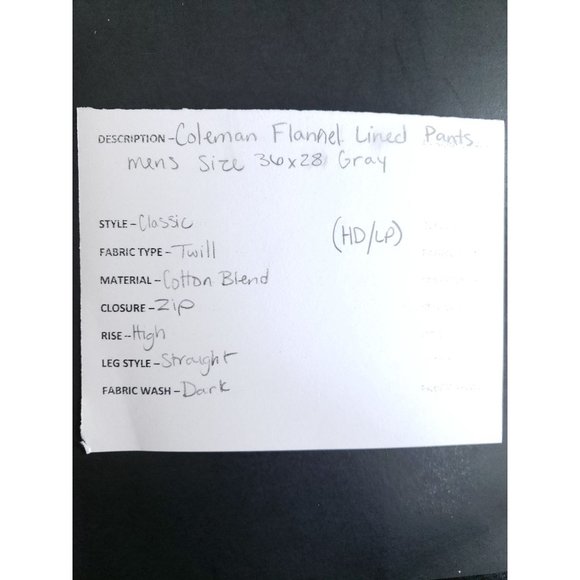 DESCRIPTION - Coleman Flannel Lined Pants
mens Size 36x28 Gray
STYLE - Classic
(HD/LP)
FABRIC TYPE - Twill
MATERIAL - Cotton Blend
CLOSURE - Zip
RISE - High
LEG STYLE - Straight
FABRIC WASH - Dark